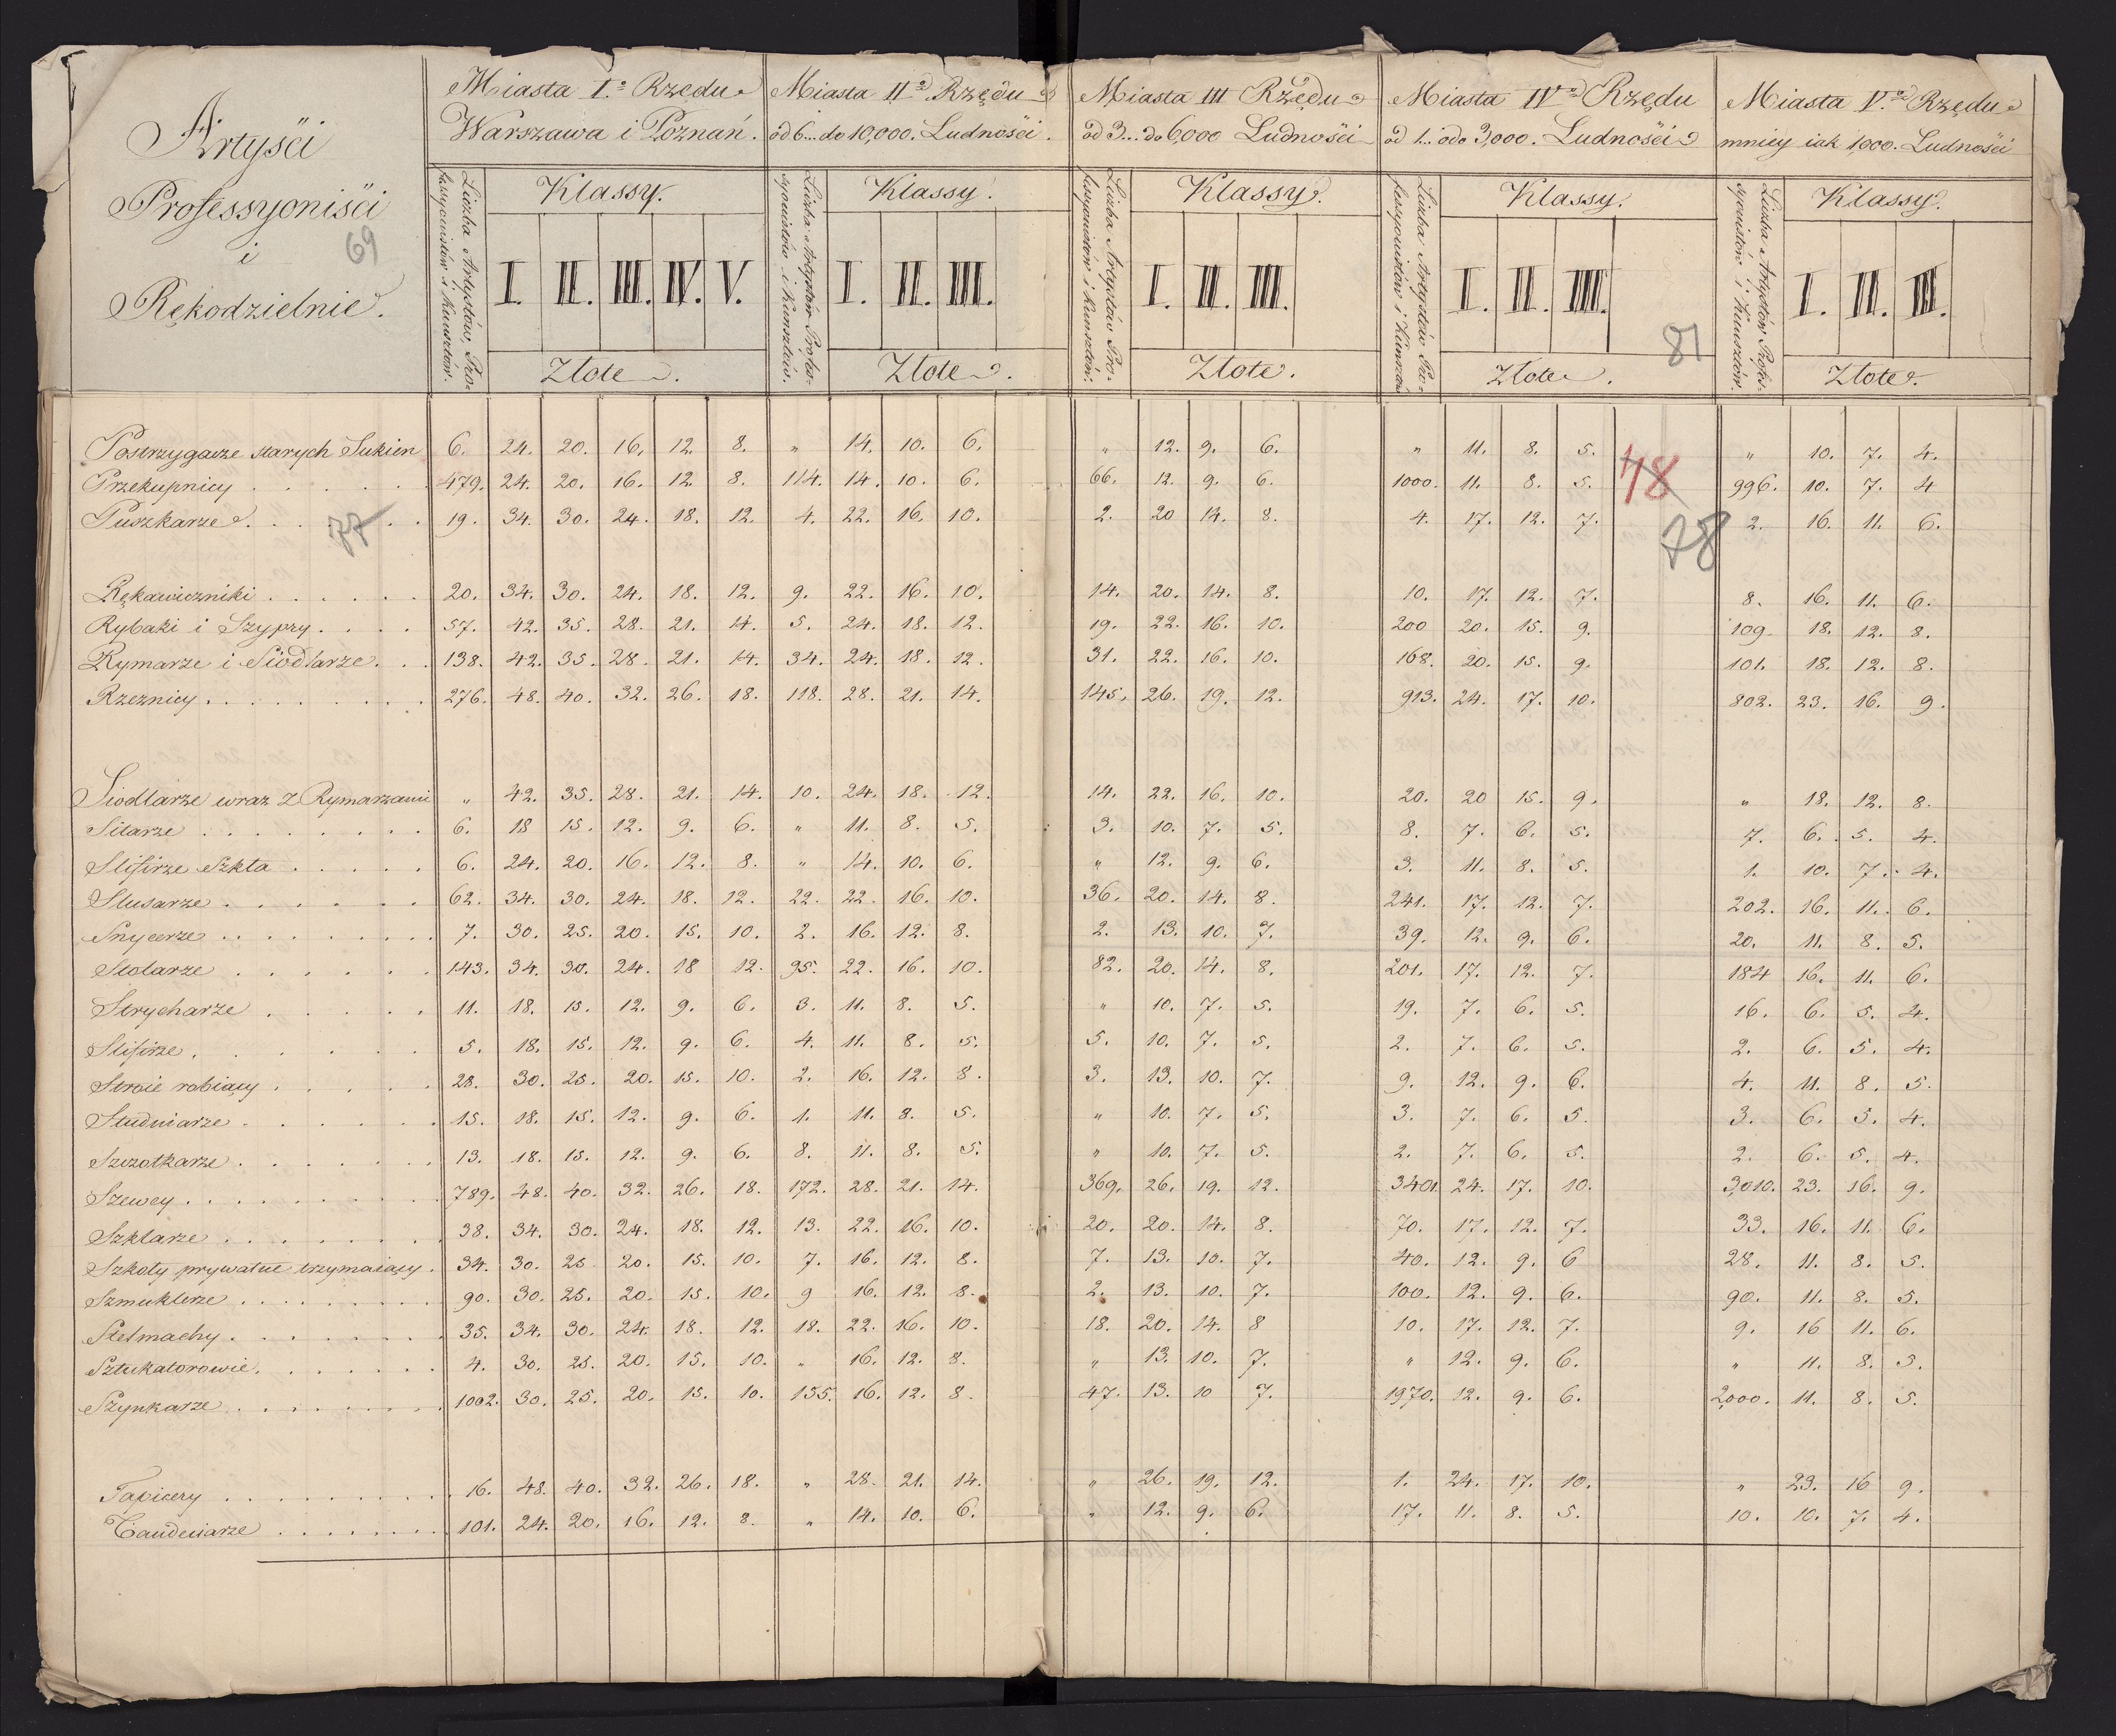 Artyści
Professyoniści
i
Rękodzielnie.
69
Miasta I.º Rzędu
Warszawa i Poznań.
Miasta IIº Rzędu
od 6... do 10,000. Ludności.
Miasta III Rzędu
od 3... do 6,000 Ludności
Miasta IVº Rzędu
od 1... do 3,000. Ludności
Miasta V.º Rzędu
mniey iak 1,000. Ludności
Liczba Artystów, Pro-
fessyonistów i Kunsztów.
Klassy.
I. II. III. IV. V.
Złote.
Liczba Artystów Profes-
syonistów i Kunsztów.
Klassy.
I. II. III.
Złote.
Liczba Artystów Pro-
fessyonistów i Kunsztów.
Klassy.
I. II. III.
Złote.
Liczba Artystów Pro-
fessyonistów i Kunsztów
Klassy.
I. II. III.
Złote.
81
Liczba Artystów Profes-
syonistów i Kunsztów.
Klassy.
I. II. III.
Złote.
Postrzygacze starych Sukien 6. 24. 20. 16. 12. 8. „ 14. 10. 6. „ 12. 9. 6. „ 11. 8. 5. „ 10. 7. 4.
Przekupnicy 479. 24. 20. 16. 12. 8. 114. 14. 10. 6. 66. 12. 9. 6. 1000. 11. 8. 5. 996. 10. 7. 4
Puszkarze. 19. 34. 30. 24. 18. 12. 4. 22. 16. 10. 2. 20 14. 8. 4. 17. 12. 7. 2. 16. 11. 6.
77
78
78
Rękawiczniki 20. 34. 30. 24. 18. 12. 9. 22. 16. 10. 14. 20. 14. 8. 10. 17. 12. 7. 8. 16. 11. 6.
Rybaki i Szypry. 57. 42. 35. 28. 21. 14. 5. 24. 18. 12. 19. 22. 16. 10. 200 20. 15. 9. 109 18. 12. 8.
Rymarze i Siodlarze. 138. 42. 35. 28. 21. 14. 34. 24. 18. 12. 31. 22. 16. 10. 168. 20. 15. 9. 101. 18. 12. 8.
Rzeznicy 276. 48. 40. 32. 26. 18. 118. 28. 21. 14. 145. 26. 19. 12. 913. 24. 17. 10. 802. 23. 16. 9.
Siodlarze wraz z Rymarzami „ 42. 35. 28. 21. 14. 10. 24. 18. 12. 14. 22. 16. 10. 20. 20 15. 9. „ 18. 12. 8.
Sitarze 6. 18 15. 12. 9. 6. „ 11. 8. 5. 3. 10. 7. 5. 8. 7. 6. 5. 7. 6. 5. 4.
Slifirze Szkła 6. 24. 20. 16. 12. 8. „ 14. 10. 6. „ 12. 9. 6. 3. 11. 8. 5. 1. 10. 7. 4.
Slusarze 62. 34. 30. 24. 18. 12. 22. 22. 16. 10. 36. 20. 14. 8. 241. 17. 12. 7. 202. 16. 11. 6.
Snycerze 7. 30. 25. 20. 15. 10. 2. 16. 12. 8. 2. 13. 10. 7. 39. 12. 9. 6. 20. 11. 8. 5.
Stolarze 143. 34. 30. 24. 18 12. 95. 22. 16. 10. 82. 20. 14. 8. 201. 17. 12. 7. 184 16. 11. 6.
Strycharze 11. 18. 15. 12. 9. 6. 3. 11. 8. 5. „ 10. 7. 5. 19. 7. 6. 5. 16. 6. 5. 4.
Slifirze. 5. 18. 15. 12. 9. 6. 4. 11. 8. 5. 5. 10. 7. 5. 2. 7. 6. 5. 2. 6. 5. 4.
Stroie robiący 28. 30. 25. 20. 15. 10. 2. 16. 12. 8. 3. 13. 10. 7. 9. 12. 9. 6. 4. 11. 8. 5.
Studniarze 15. 18. 15. 12. 9. 6. 1. 11. 8. 5. „ 10. 7. 5. 3. 7. 6. 5 3. 6. 5. 4.
Szczotkarze 13. 18. 15. 12. 9. 6. 8. 11. 8. 5. „ 10. 7. 5. 2. 7. 6. 5. 2. 6. 5. 4.
Szewcy 789. 48. 40. 32. 26. 18. 172. 28. 21. 14. 369. 26. 19. 12. 3401. 24. 17. 10. 3,010. 23. 16. 9.
Szklarze 38. 34. 30. 24. 18. 12. 13. 22. 16. 10. 20. 20. 14. 8. 70. 17. 12. 7. 33. 16. 11. 6.
Szkoły prywatne trzymaiący. 34. 30. 25 20. 15. 10. 7. 16. 12. 8. 7. 13. 10. 7. 40. 12. 9. 6 28. 11. 8. 5.
Szmuklerze 90. 30. 25. 20. 15. 10. 9 16. 12. 8. 2. 13. 10. 7. 100. 12. 9. 6. 90. 11. 8. 5.
Stelmachy 35. 34. 30. 24. 18. 12. 18. 22. 16. 10. 18. 20. 14. 8 10. 17. 12. 7. 9. 16 11. 6.
Sztukatorowie. 4. 30. 25. 20. 15. 10. „ 16. 12. 8. „ 13. 10. 7. „ 12. 9. 6. „ 11. 8. 5.
Szynkarze 1002. 30. 25. 20. 15. 10. 155. 16. 12. 8. 47. 13. 10 7. 1970. 12. 9. 6. 2,000. 11. 8. 5.
Tapicery 16. 48. 40. 32. 26. 18. „ 28. 21. 14. „ 26. 19. 12. 1. 24. 17. 10. „ 23. 16 9.
Tandeciarze 101. 24. 20. 16. 12. 8. „ 14. 10. 6. „ 12. 9. 6. 17. 11. 8. 5. 10. 10. 7. 4.